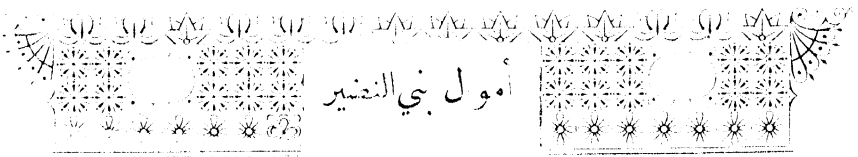 أموال بني النضير